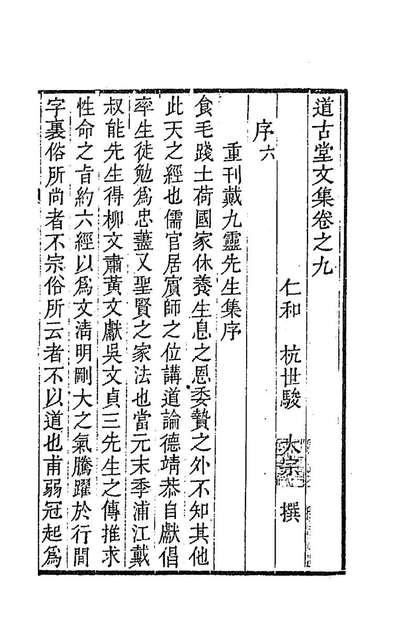 道古堂文集卷之九
仁和 杭世駿 大宗 撰
序六
重刊戴九靈先生集序
食毛踐土荷國家休養生息之恩委贄之外不知其他
此天之經也儒官居賔師之位講道論德靖恭自獻倡
率生徒勉爲忠藎又聖賢之家法也當元末季浦江戴
叔能先生得柳文肅黃文獻吳文貞三先生之傳推求
性命之旨約六經以爲文淸明剛大之氣騰躍於行間
字裏俗所尚者不宗俗所云者不以道也甫弱冠起爲